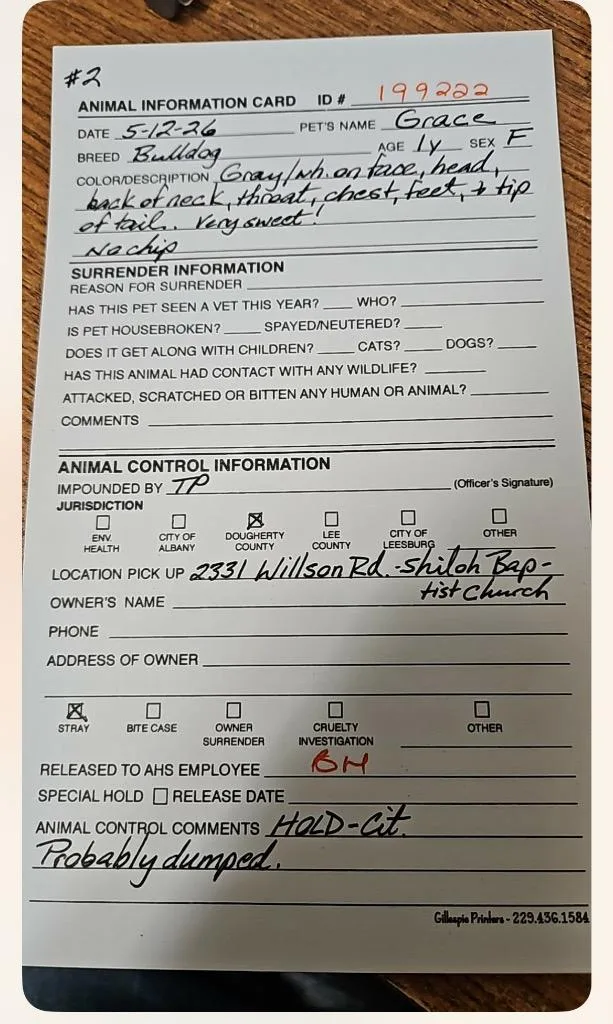 #2
ANIMAL INFORMATION CARD ID # 199222
DATE 5-12-26 PET'S NAME Grace
BREED Bulldog AGE 1y SEX F
COLOR/DESCRIPTION Gray/wh. on face, head,
back of neck, throat, chest, feet, + tip
of tail. Very sweet!
No chip
SURRENDER INFORMATION
REASON FOR SURRENDER
HAS THIS PET SEEN A VET THIS YEAR? WHO?
IS PET HOUSEBROKEN? SPAYED/NEUTERED?
DOES IT GET ALONG WITH CHILDREN? CATS? DOGS?
HAS THIS ANIMAL HAD CONTACT WITH ANY WILDLIFE?
ATTACKED, SCRATCHED OR BITTEN ANY HUMAN OR ANIMAL?
COMMENTS
ANIMAL CONTROL INFORMATION
IMPOUNDED BY TP (Officer's Signature)
JURISDICTION
ENV. HEALTH CITY OF ALBANY DOUGHERTY COUNTY LEE COUNTY CITY OF LEESBURG OTHER
LOCATION PICK UP 2331 Willson Rd. - Shiloh Bap-
tist Church
OWNER'S NAME
PHONE
ADDRESS OF OWNER
STRAY BITE CASE OWNER SURRENDER CRUELTY INVESTIGATION OTHER
RELEASED TO AHS EMPLOYEE BH
SPECIAL HOLD RELEASE DATE
ANIMAL CONTROL COMMENTS HOLD-Cit.
Probably dumped.
Gillespie Printers - 229.436.1584